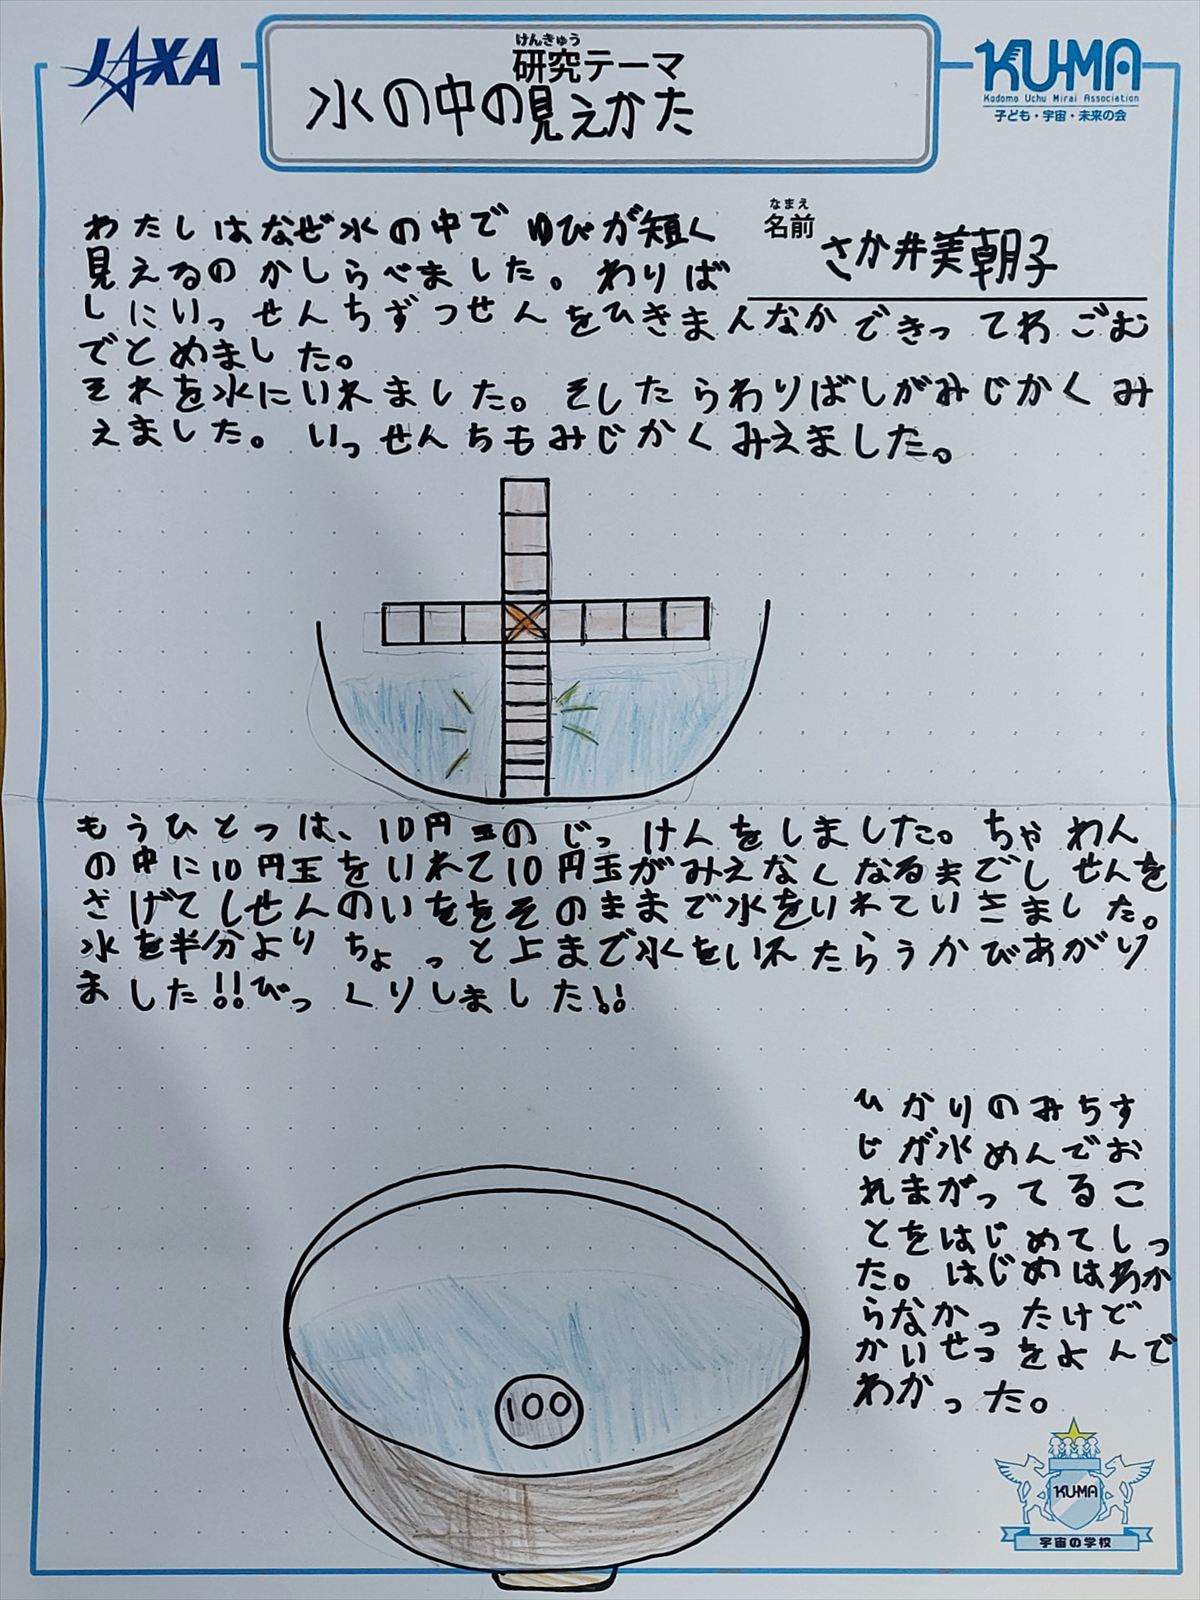 JAXA
けんきゅう
研究テーマ
水の中の見えかた
KU-MA
Kodomo Uchu Mirai Association
子ども・宇宙・未来の会
なまえ
名前
さか井美朝子
わたしはなぜ水の中でゆびが短く
見えるのかしらべました。わりば
しにいっせんちずつせんをひきまんなかできってわごむ
でとめました。
それを水にいれました。そしたらわりばしがみじかくみ
えました。いっせんちもみじかくみえました。
もうひとつは、10円玉のじっけんをしました。ちゃわん
の中に10円玉をいれて10円玉がみえなくなるまでしせんを
さげてしせんのいちをそのままで水をいれていきました。
水を半分よりちょっと上まで水をいれたらうかびあがり
ました!!びっくりしました!!
ひかりのみちす
じが水めんでお
れまがってるこ
とをはじめてしっ
た。はじめはわか
らなかったけど
かいせつをよんで
わかった。
100
KU-MA
宇宙の学校